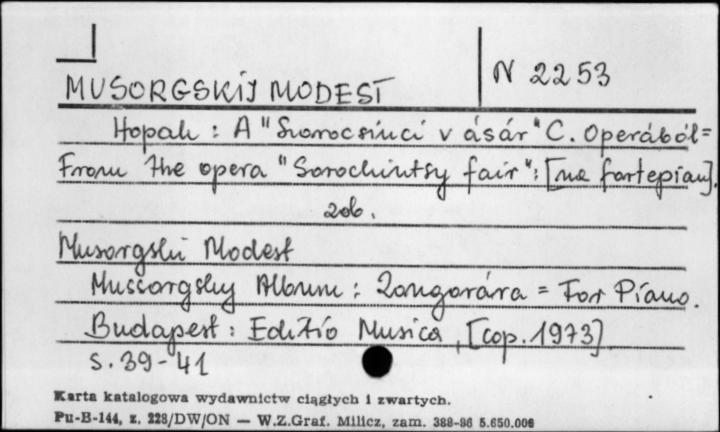 N 2253
MUSORGSKIJ MODEST
Hopak : A "Sorocsinci vásár" C. Operából =
From the opera "Sorochintsy fair" : [na fortepian].
zob.
Musorgski Modest
Mussorgsky Album : Zongorára = For Piano.
Budapest : Editio Musica, [cop. 1973].
s. 39-41
Karta katalogowa wydawnictw ciągłych i zwartych.
Pu-B-144, z. 228/DW/ON — W.Z.Graf. Milicz, zam. 388-86 5.650.000